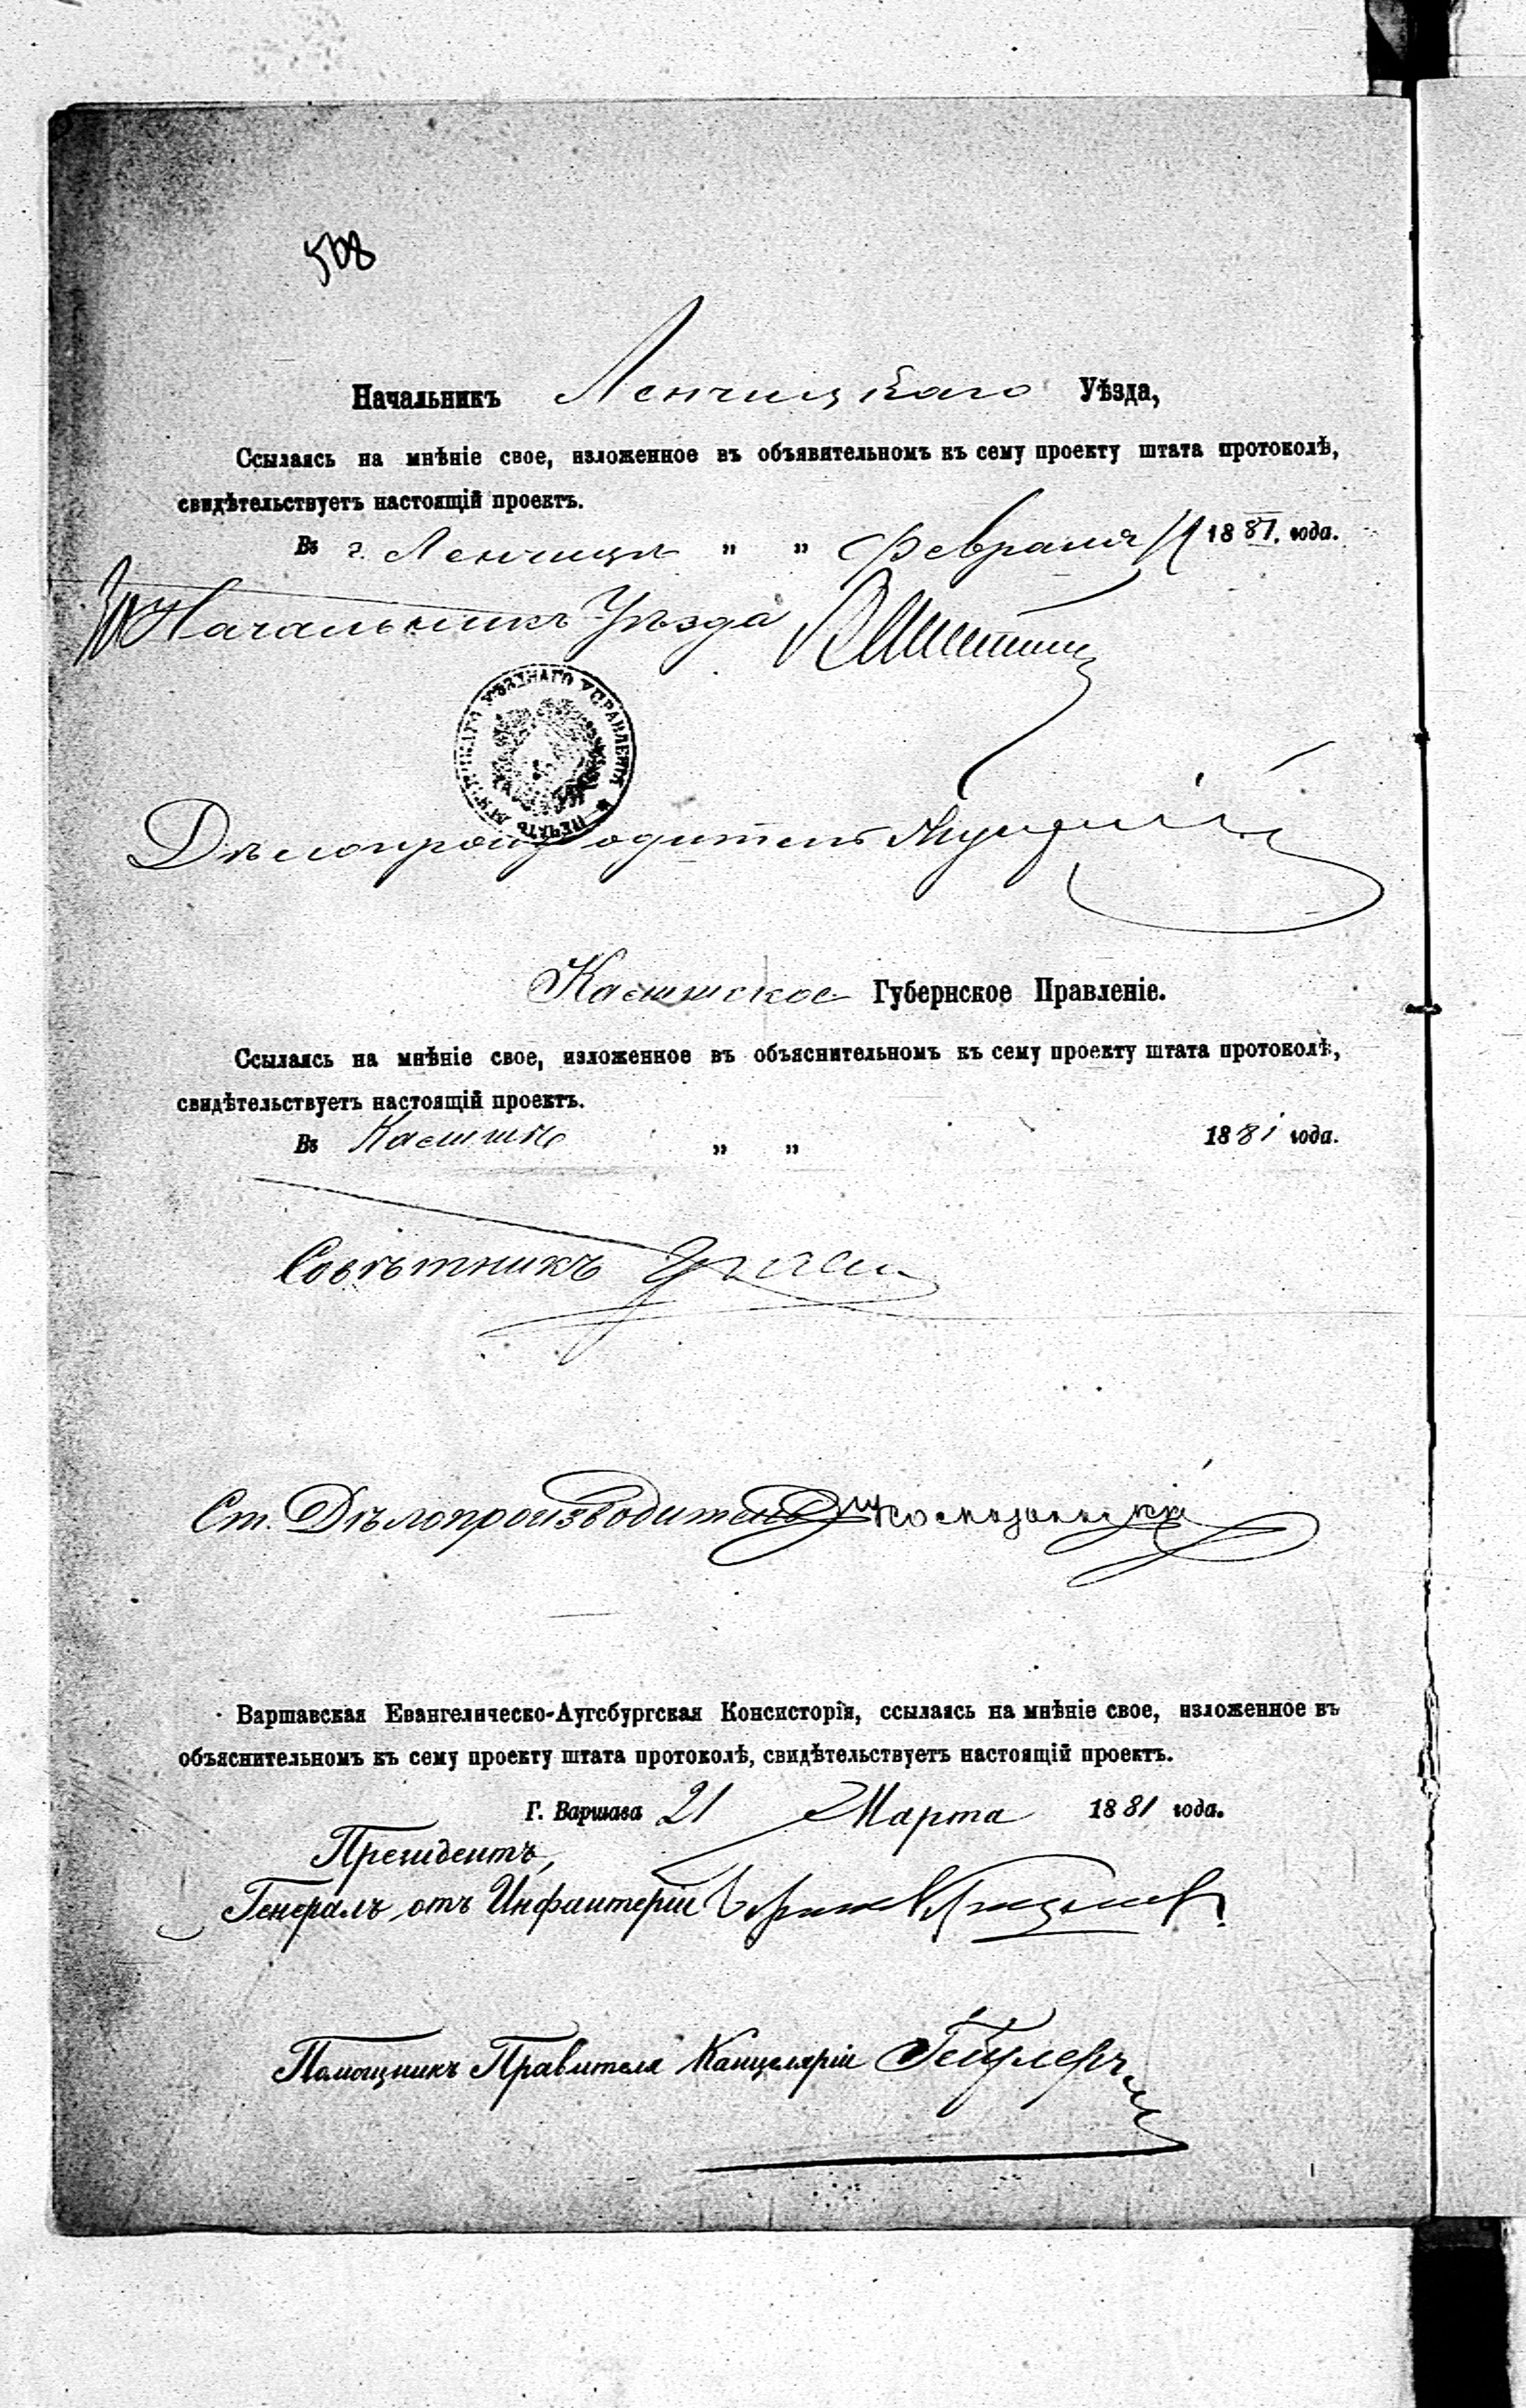 508
Начальникъ Ленчицкаго Уѣзда,
Ссылаясь на мнѣніе свое, изложенное въ объявительномъ къ сему проекту штата протоколѣ,
свидѣтельствуетъ настоящій проектъ.
Въ г. Ленчицѣ „ „ Февраля 11 1881. года.
За Начальникъ Уѣзда
УѢЗДНАГО УПРАВЛЕНІЯ * ПЕЧАТЬ
Дѣлопроизводитель
Калишское Губернское Правленіе.
Ссылаясь на мнѣніе свое, изложенное въ объяснительномъ къ сему проекту штата протоколѣ,
свидѣтельствуетъ настоящій проектъ.
Въ Калишѣ „ „ 1881 года.
Совѣтникъ
Ст. Дѣлопроизводитель
Варшавская Евангелическо-Аугсбургская Консисторія, ссылаясь на мнѣніе свое, изложенное въ
объяснительномъ къ сему проекту штата протоколѣ, свидѣтельствуетъ настоящій проектъ.
Г. Варшава 21 Марта 1881 года.
Президентъ,
Генералъ отъ Инфантеріи
Помощникъ Правителя Канцеляріи